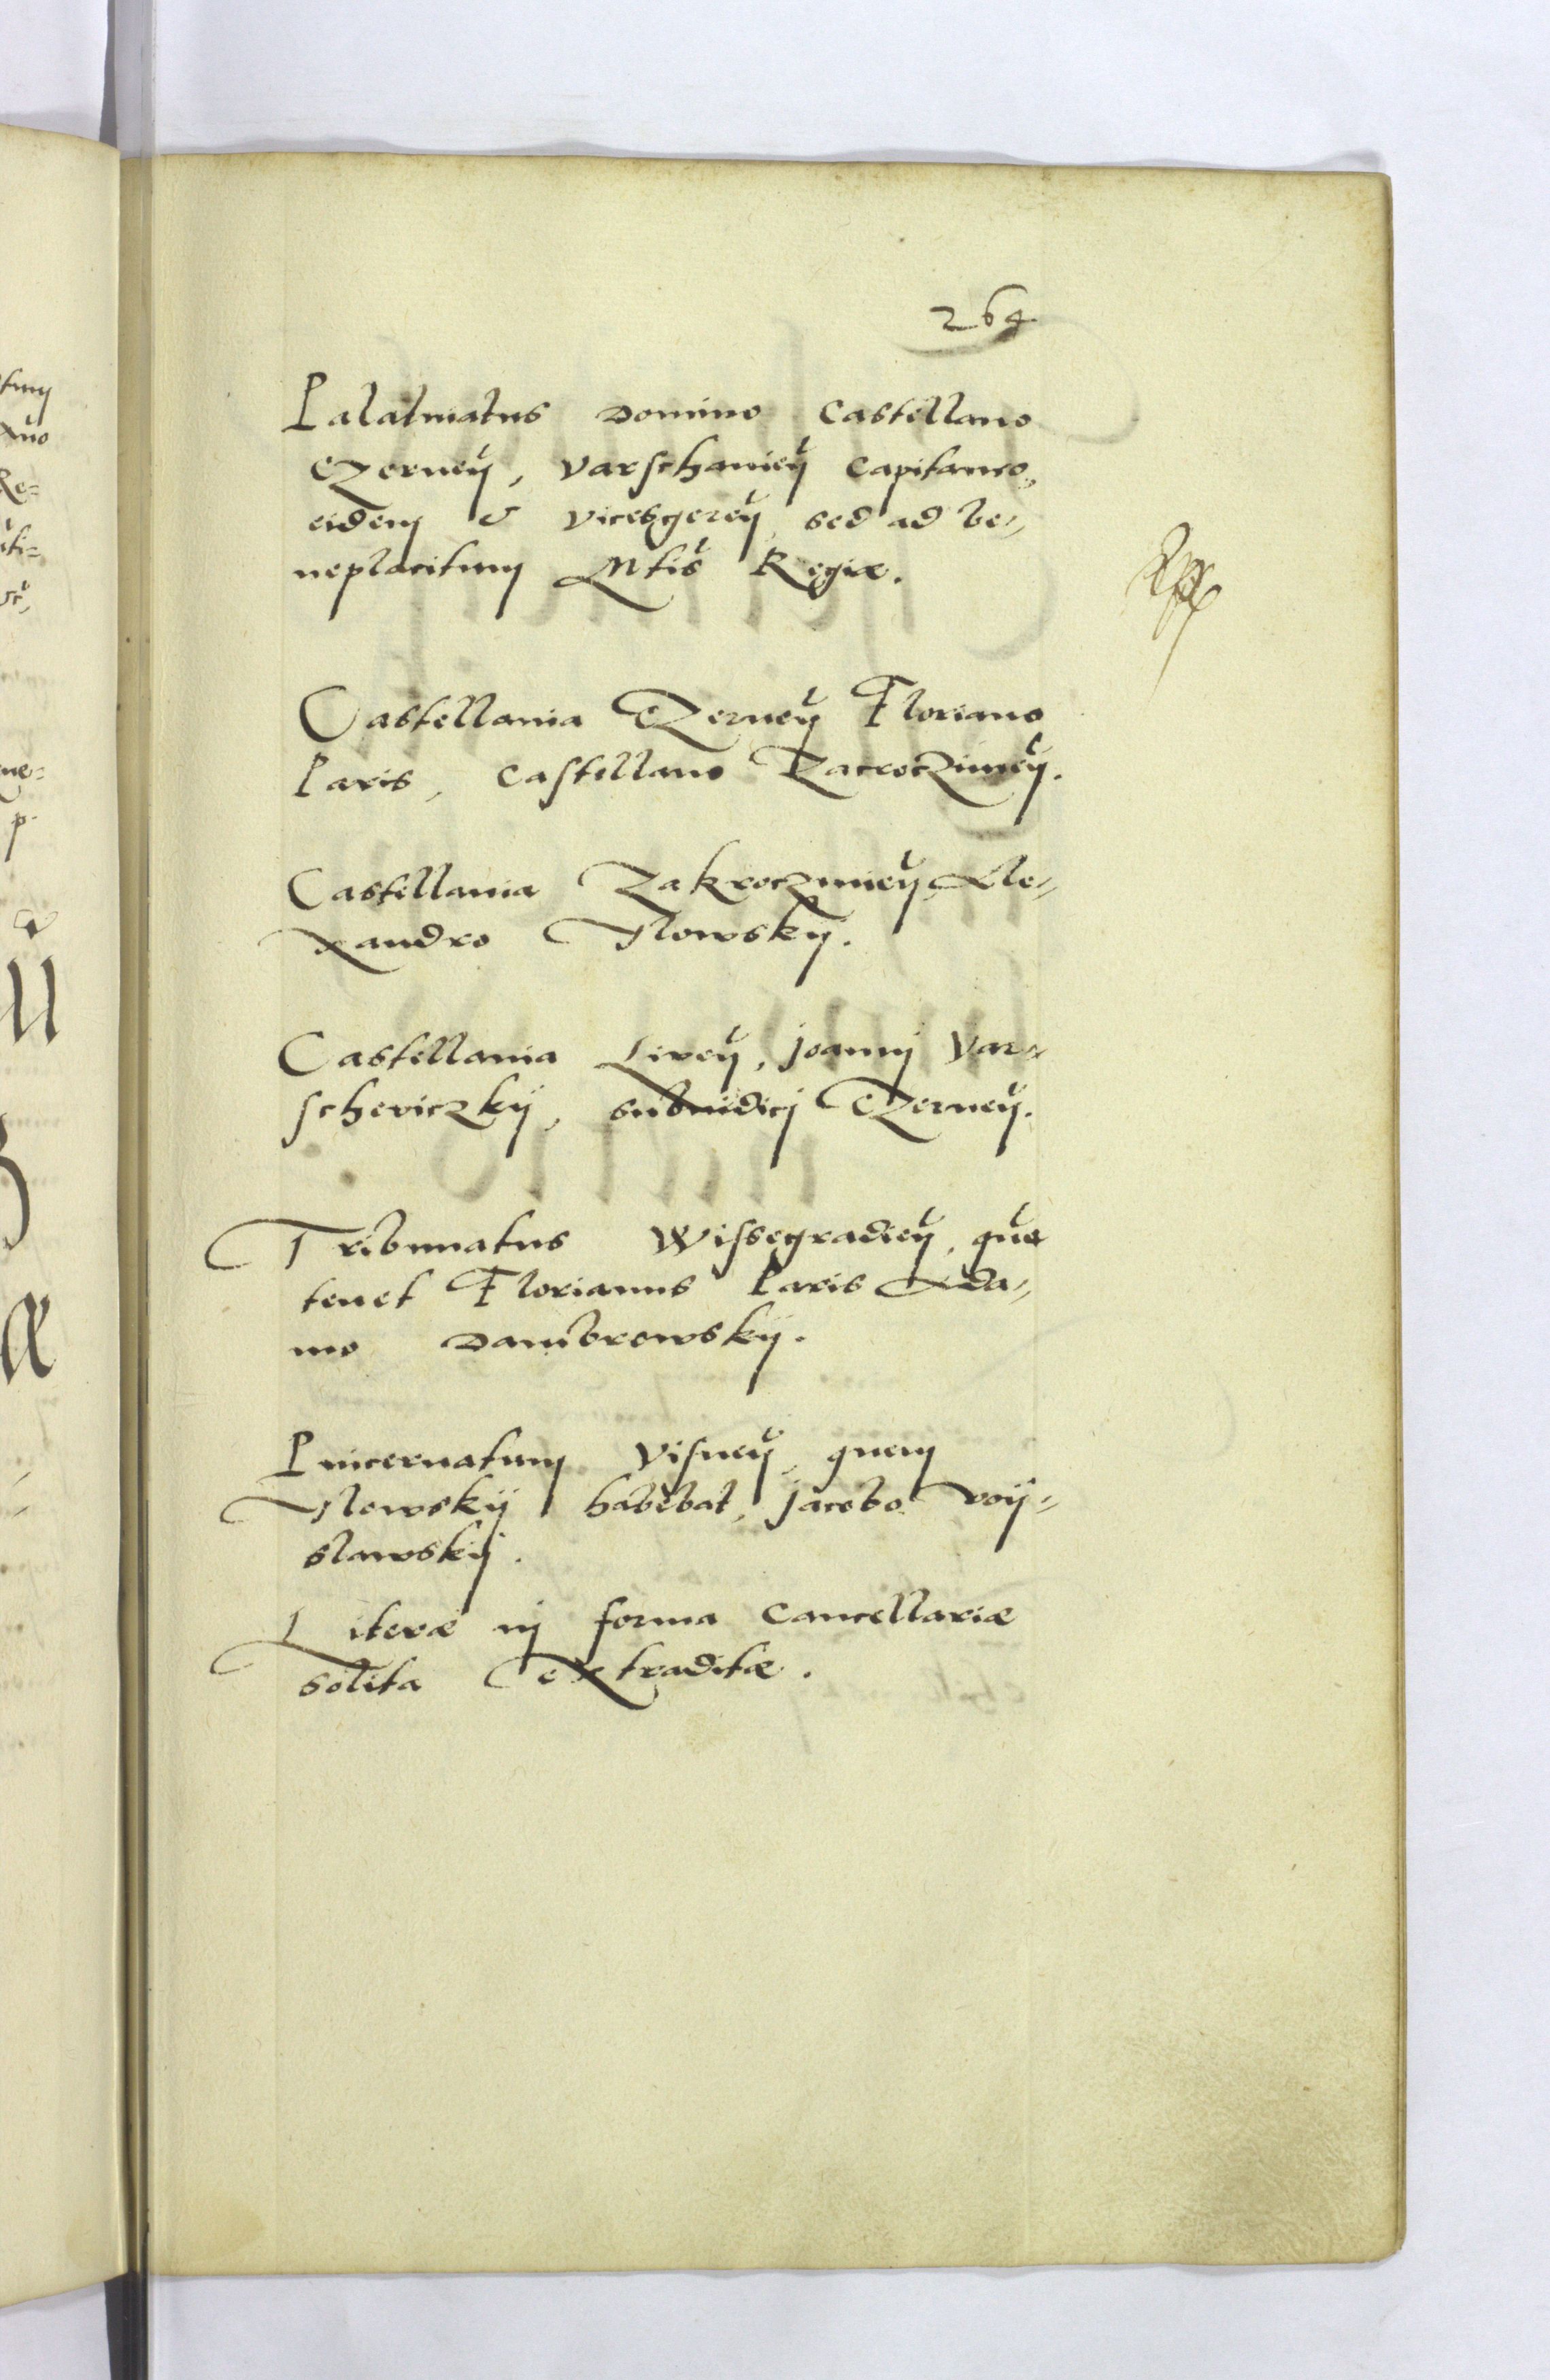 264
Palatinatus Domino Castellano
Czerneñ, Varschavieñ Capitaneo,
eidem & vicesgereñ, sed ad be-
neplacitum Mtis Regiæ.
Castellania Czerneñ Floriano
Paris, Castellano Zacrocziměn.
Castellania Zakroczimieñ, Ale-
xandro Ilowskÿ.
Castellania Liveñ, Joannj Var-
scheviczkÿ, subiudicj Czerneñ.
Tribunatus Wissegradieñ, què
tenet Florianus Paris Ada-
mo Dambrowskÿ.
Pincernatum Visneñ, quem
Ilowskÿ habebat, Jacobo Woÿ-
slawskÿ.
Literæ in forma Cancellariæ
solita extraditæ.